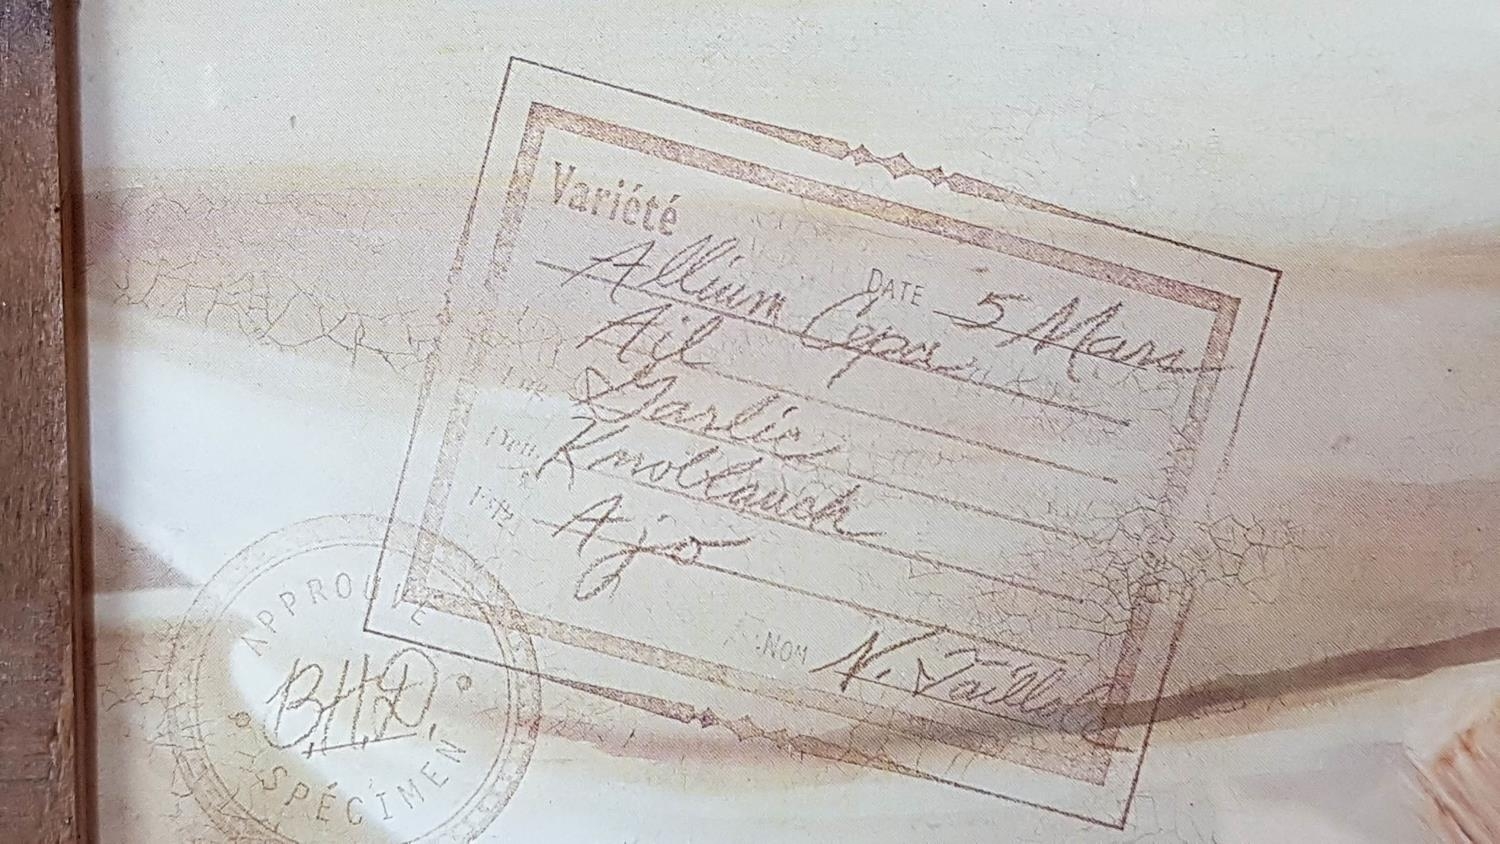 Variété
DATE 5 Mars
Allium Cepa
Ail
Garlic
Knoblauch
Ajo
NOM N.
APPROUVÉ
BHD
SPÉCIMEN